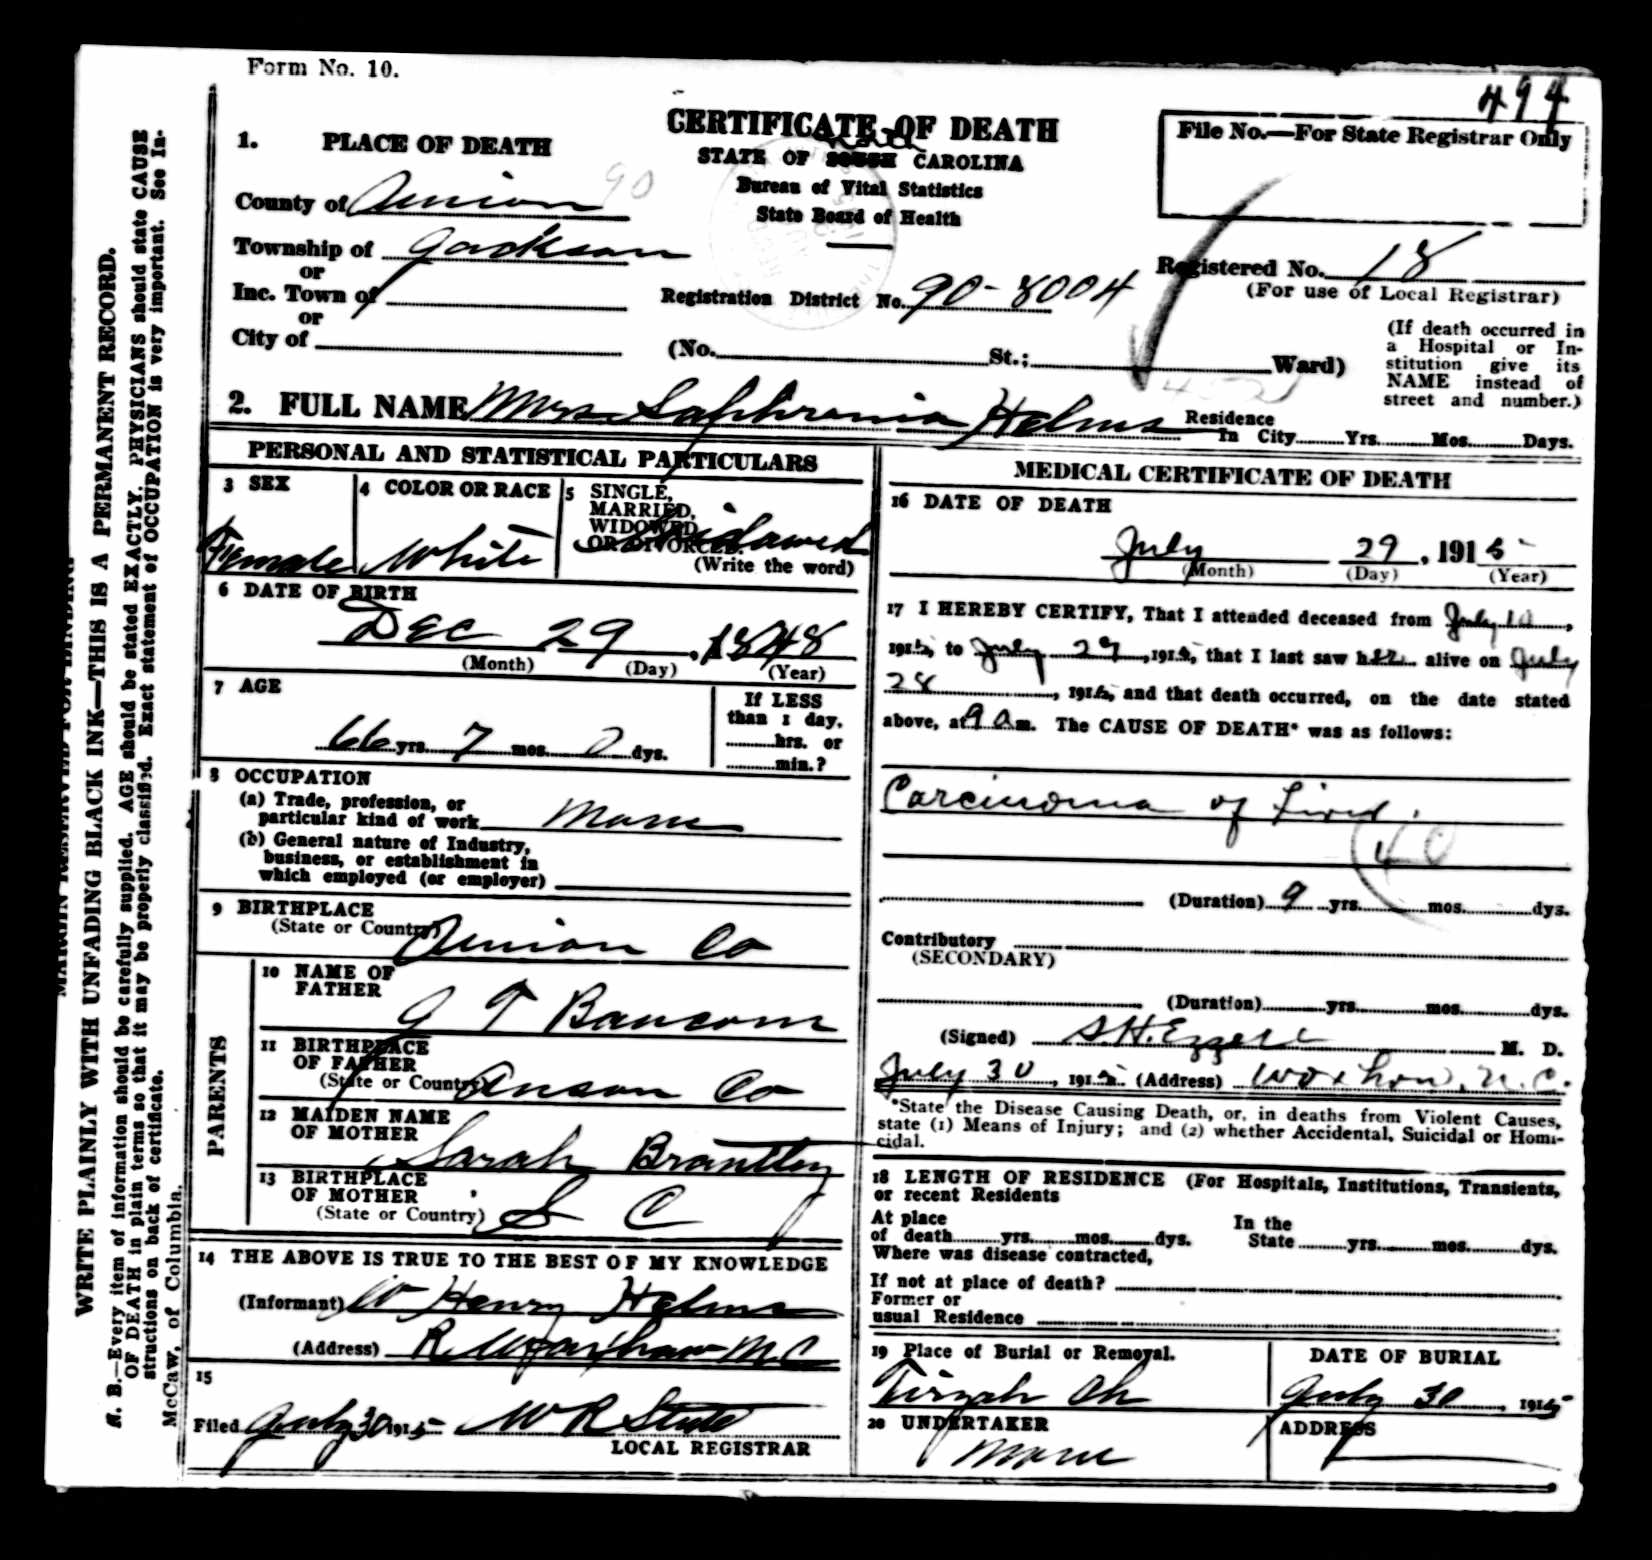 Form No. 10.
494
CERTIFICATE OF DEATH
File No.—For State Registrar Only
1. PLACE OF DEATH
STATE OF SOUTH North CAROLINA
Bureau of Vital Statistics
State Board of Health
County of Union 90
Township of Jackson
or
Inc. Town of
or
City of
Registration District No. 90-8004
Registered No. 18
(For use of Local Registrar)
(No. St.; Ward)
(If death occurred in
a Hospital or In-
stitution give its
NAME instead of
street and number.)
2. FULL NAME Mrs Saphronia Helms
Residence
In City Yrs. Mos. Days.
PERSONAL AND STATISTICAL PARTICULARS
3 SEX
Female
4 COLOR OR RACE
White
5 SINGLE,
MARRIED,
WIDOWED
OR DIVORCED.
Widowed
(Write the word)
6 DATE OF BIRTH
Dec 29, 1848
(Month) (Day) (Year)
7 AGE
66 yrs. 7 mos. 0 dys.
If LESS
than 1 day,
hrs. or
min.?
8 OCCUPATION
(a) Trade, profession, or
particular kind of work None
(b) General nature of Industry,
business, or establishment in
which employed (or employer)
9 BIRTHPLACE
(State or Country) Union Co
PARENTS
10 NAME OF
FATHER
J T Baucom
11 BIRTHPLACE
OF FATHER
(State or Country) Anson Co
12 MAIDEN NAME
OF MOTHER
Sarah Brantley
13 BIRTHPLACE
OF MOTHER
(State or Country) S C
14 THE ABOVE IS TRUE TO THE BEST OF MY KNOWLEDGE
(Informant) W Henry Helms
(Address) R Waxhaw N C
15
Filed July 30 1915 W R Stute
LOCAL REGISTRAR
MEDICAL CERTIFICATE OF DEATH
16 DATE OF DEATH
July 29, 1915
(Month) (Day) (Year)
17 I HEREBY CERTIFY, That I attended deceased from July 10,
1915, to July 29, 1915, that I last saw her alive on July
28, 1915, and that death occurred, on the date stated
above, at 9 a m. The CAUSE OF DEATH* was as follows:
Carcinoma of Liver.
40
(Duration) 9 yrs. mos. dys.
Contributory
(SECONDARY)
(Duration) yrs. mos. dys.
(Signed) S.H. Ezzell M. D.
July 30, 1915. (Address) Waxhaw, N.C.
*State the Disease Causing Death, or, in deaths from Violent Causes,
state (1) Means of Injury; and (2) whether Accidental, Suicidal or Homi-
cidal.
18 LENGTH OF RESIDENCE (For Hospitals, Institutions, Transients,
or recent Residents
At place
of death yrs. mos. dys.
In the
State yrs. mos. dys.
Where was disease contracted,
If not at place of death?
Former or
usual Residence
19 Place of Burial or Removal.
Tirzah Ch
DATE OF BURIAL
July 30, 1915
20 UNDERTAKER
None
ADDRESS
MARGIN RESERVED FOR BINDING
WRITE PLAINLY WITH UNFADING BLACK INK—THIS IS A PERMANENT RECORD.
N. B.—Every item of information should be carefully supplied. AGE should be stated EXACTLY. PHYSICIANS should state CAUSE
OF DEATH in plain terms so that it may be properly classified. Exact statement of OCCUPATION is very important. See In-
structions on back of certificate.
McCaw, of Columbia.